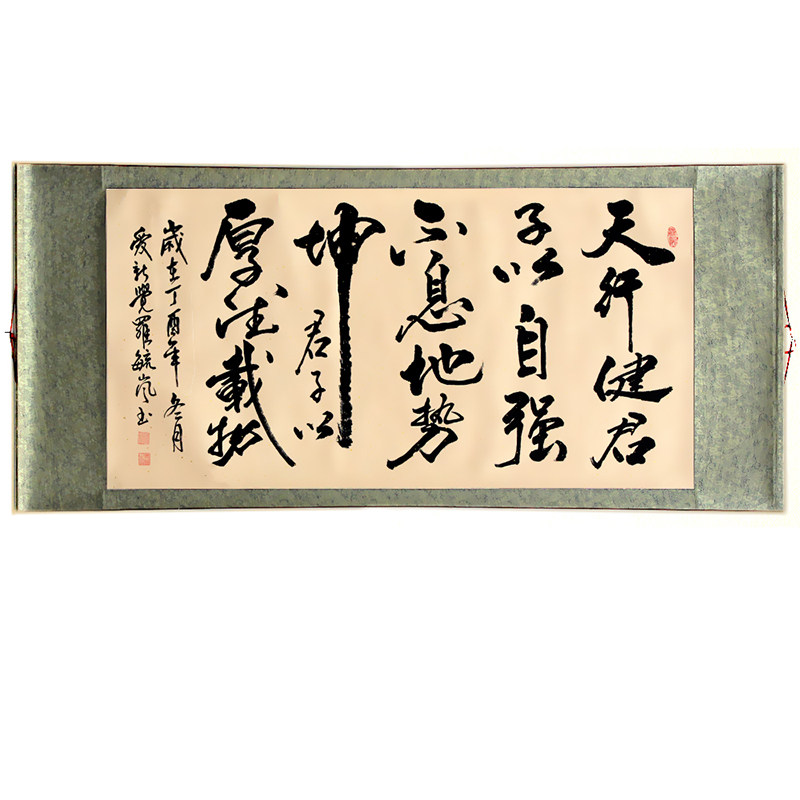 天行健君
子以自强
不息地势
坤君子以
厚德载物
歲在丁酉年冬月
爱新覺羅毓嵐書